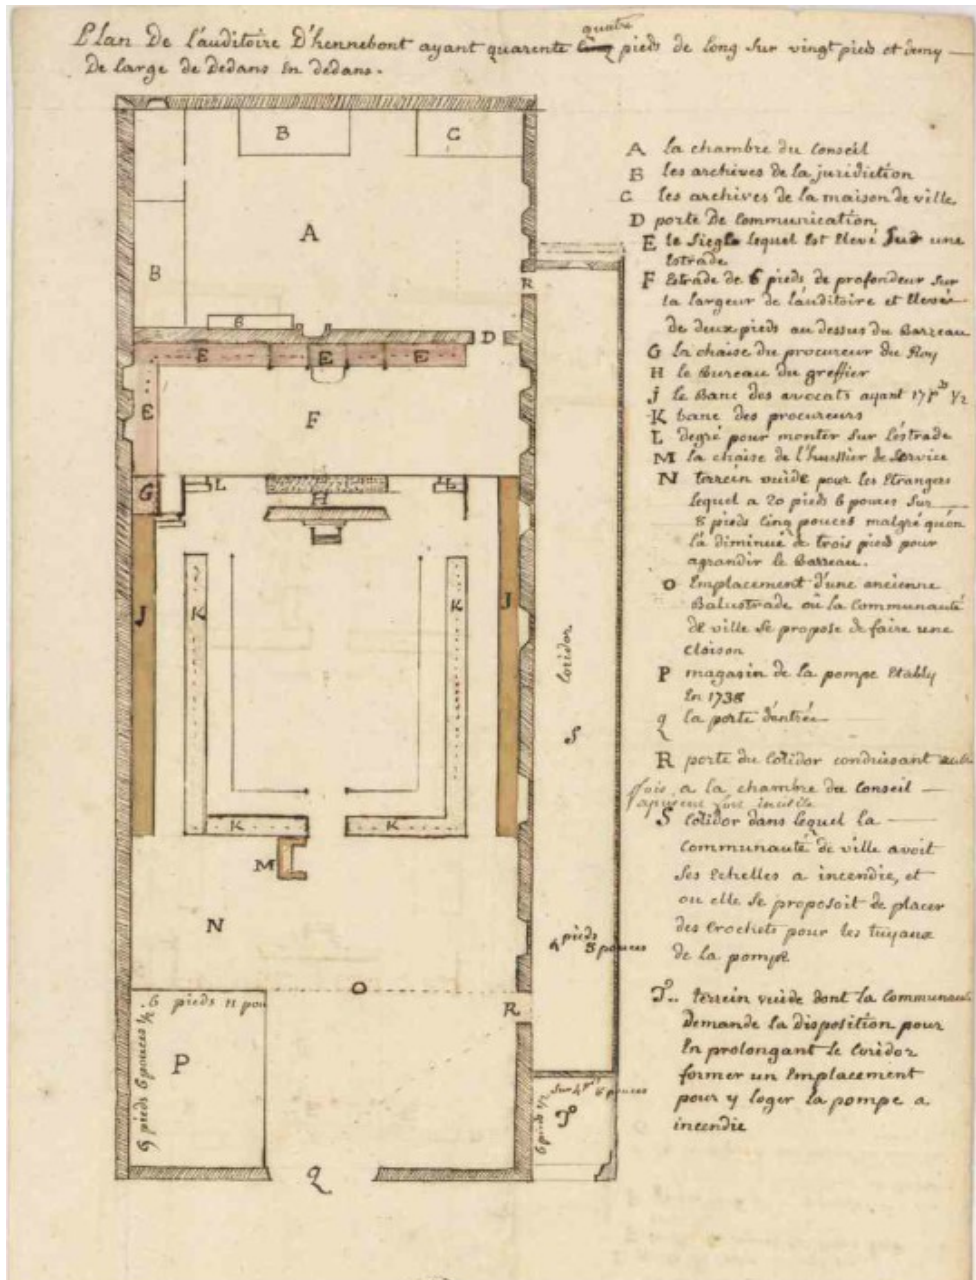 Plan De l'auditoire D'hennebont ayant quarente quatre pieds de long sur vingt pieds et demy
De large de Dedans en dedans.
A la chambre du Conseil
B les archives de la juridiction
C les archives de la maison de ville
D porte de Communication
E le siege lequel est Elevé sur une
Estrade
F Estrade de 6 pieds de profondeur sur
la largeur de l'auditoire et Elevée
de deux pieds au dessus du Barreau
G la chaise du procureur du Roy
H le Bureau du greffier
J le Banc des avocats ayant 17 pds 1/2
K banc des procureurs
L degré pour monter sur l'éstrade
M la chaise de l'huissier de Service
N terrein vuide pour les Etrangers
lequel a 20 pieds 6 pouces sur
8 pieds Cinq pouces malgré qu'on
la diminué de trois pieds pour
agrandir le Barreau.
O Emplacement d'une ancienne
Balustrade où la Communauté
de ville se propose de faire une
Cloison
P magasin de la pompe Etably
En 1738
q la porte d'entrée
R porte du Coridor conduisant
fois a la chambre du Conseil
S Coridor dans lequel la
Communauté de ville avoit
ses Echelles a incendie, et
ou elle se proposoit de placer
des Crochets pour les tuyaux
de la pompe
T.. terrein vuide dont la Communau
Demande la disposition pour
En prolongant le Coridor
former un Emplacement
pour y loger la pompe a
incendie
B
C
A
B
B
R
D
E
E
E
E
F
G
L
H
L
J
K
K
J
Coridor
S
K
K
M
N
4 pieds
8 pouces
O
R
6 pieds 11 pou
9 pieds 6 pouces 1/2
P
sur 4 pds 8 pouces
6 pieds 1/2
T
Q